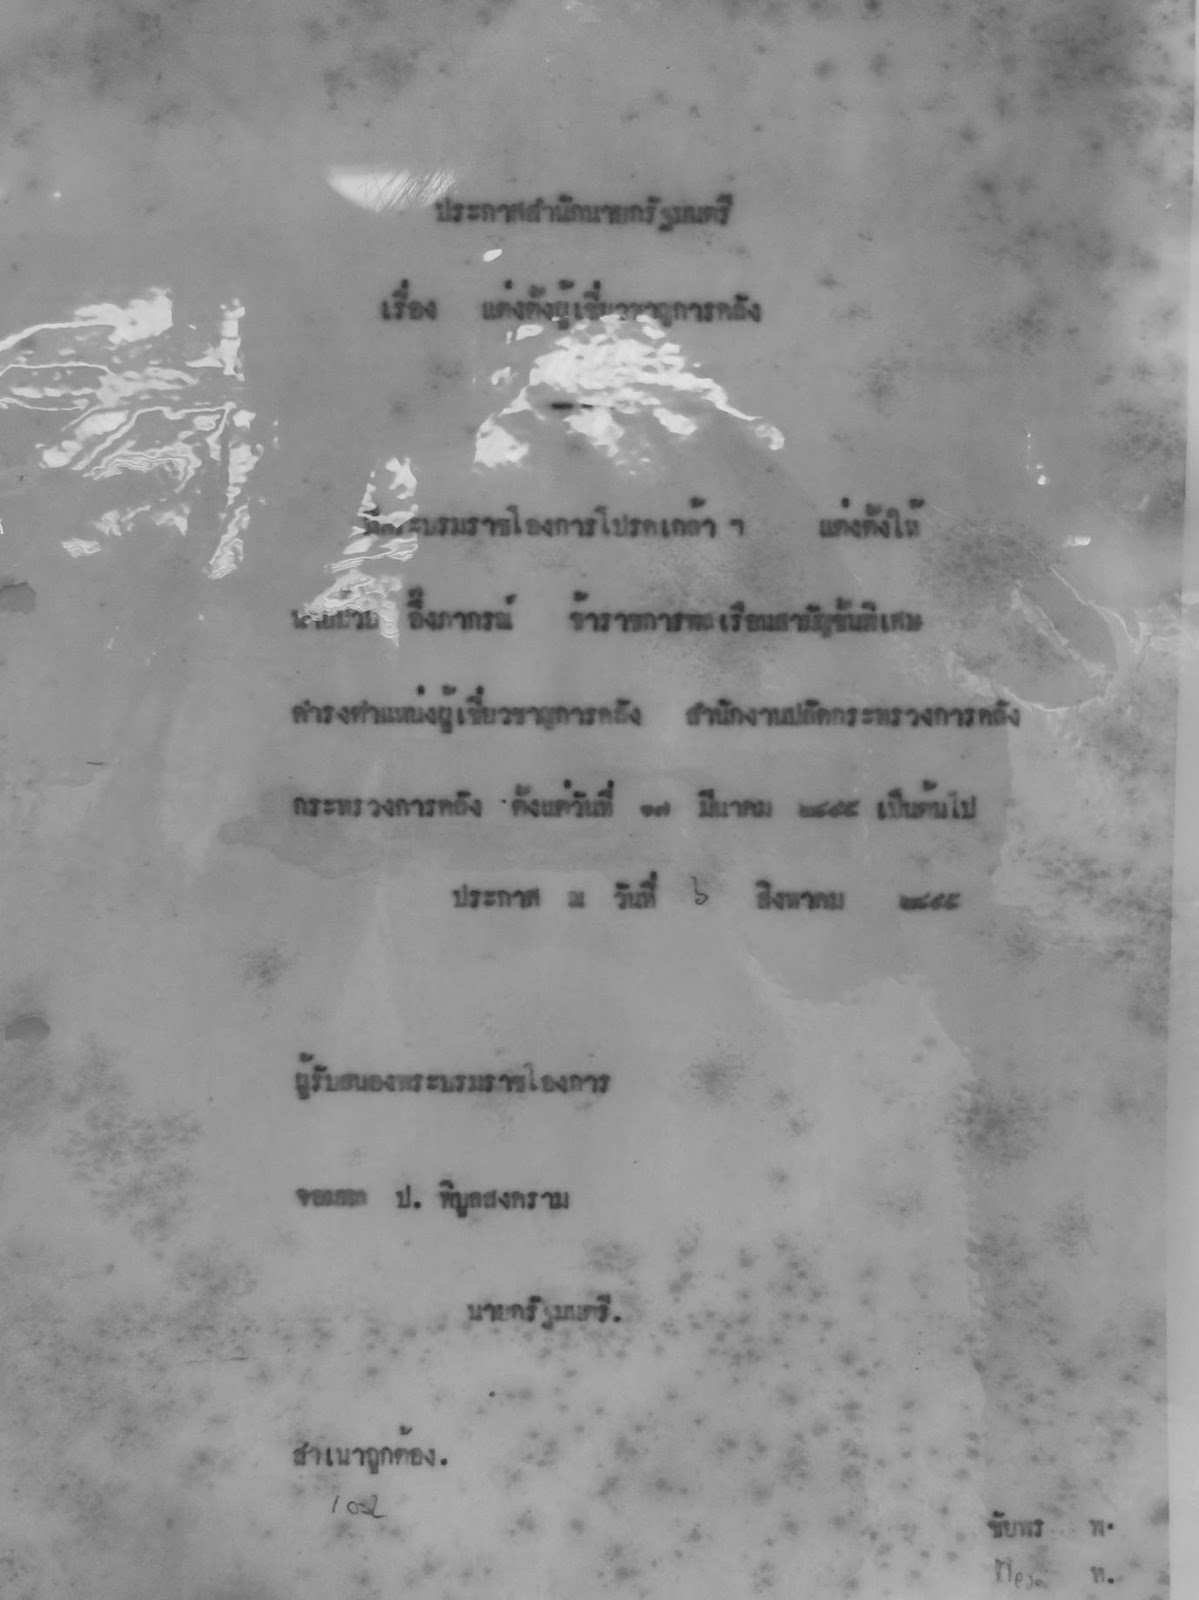 ประกาศสำนักนายกรัฐมนตรี
เรื่อง แต่งตั้งผู้เชี่ยวชาญการคลัง
พระบรมราชโองการโปรดเกล้า ฯ แต่งตั้งให้
นายป๋วย อึ๊งภากรณ์ ข้าราชการพลเรือนสามัญชั้นพิเศษ
ดำรงตำแหน่งผู้เชี่ยวชาญการคลัง สำนักงานปลัดกระทรวงการคลัง
กระทรวงการคลัง ตั้งแต่วันที่ ๑๗ มีนาคม ๒๔๙๕ เป็นต้นไป
ประกาศ ณ วันที่ ๖ สิงหาคม ๒๔๙๕
ผู้รับสนองพระบรมราชโองการ
จอมพล ป. พิบูลสงคราม
นายกรัฐมนตรี.
สำเนาถูกต้อง.
ชัยพร พ.
ท.